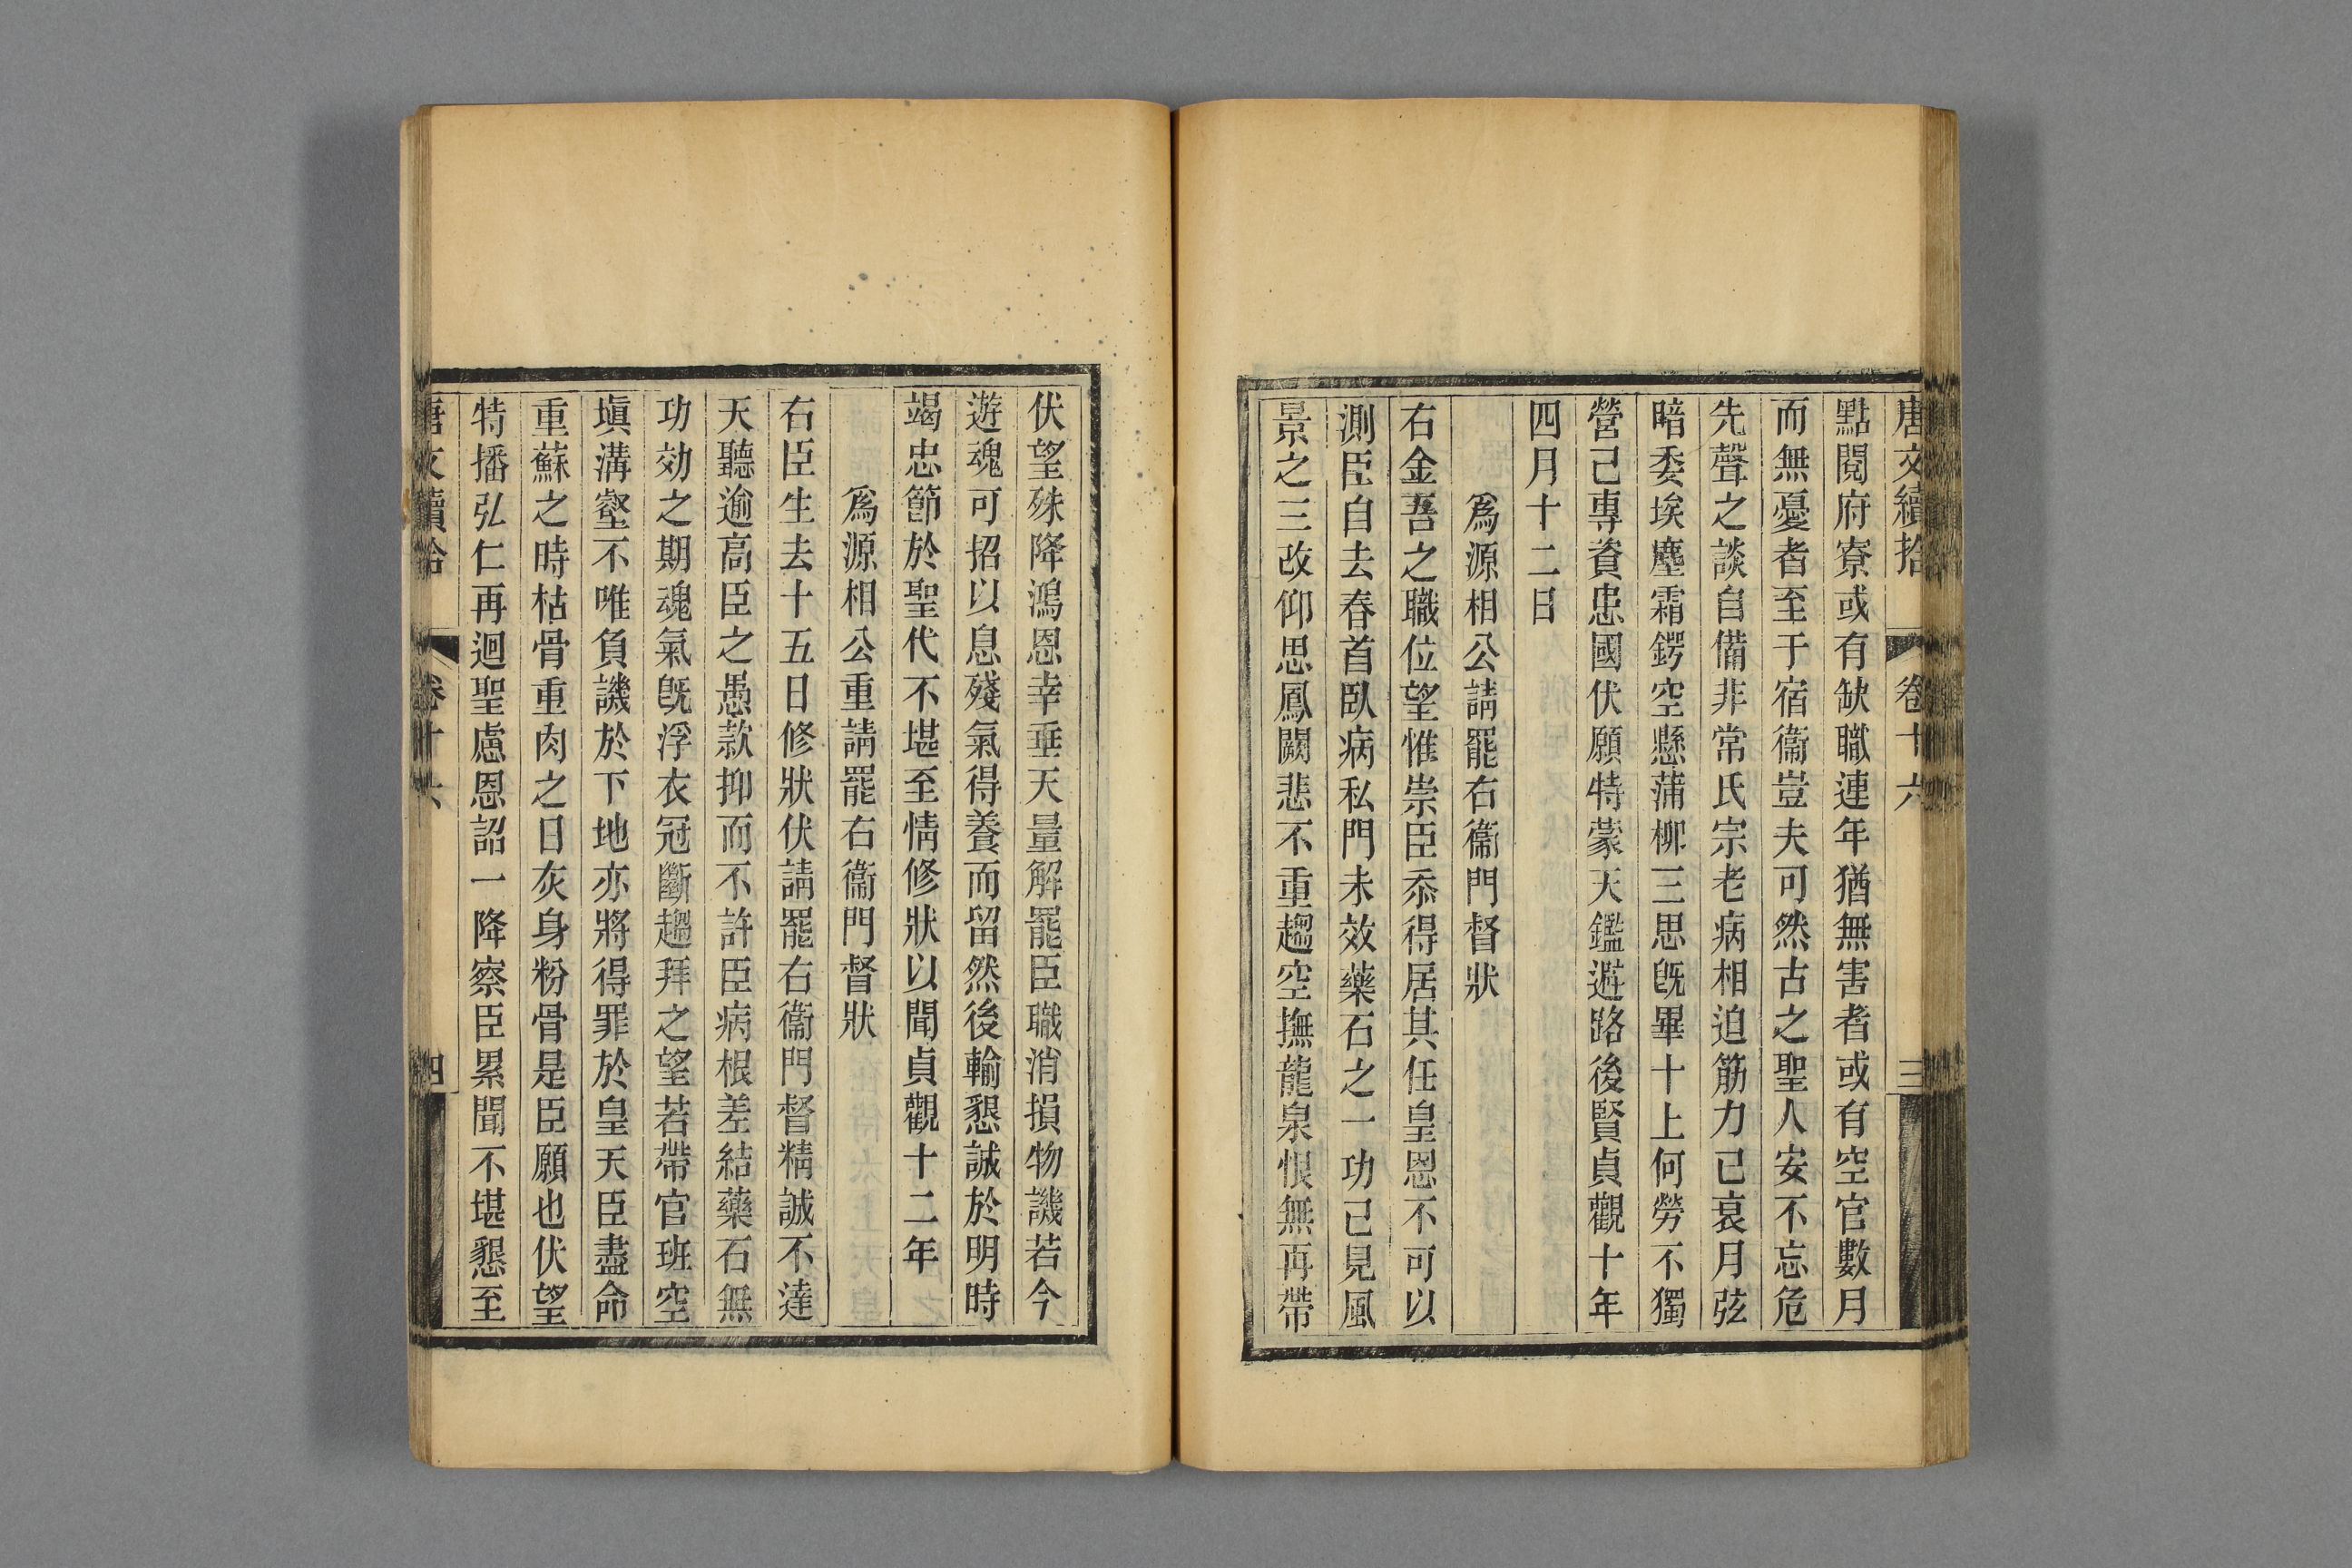 唐文續拾 卷十六 三
點閱府寮或有缺職連年猶無害者或有空官數月
而無憂者至于宿衞豈夫可然古之聖人安不忘危
先聲之談自備非常氏宗老病相迫筋力已衰月弦
暗委埃塵霜鍔空懸蒲柳三思旣畢十上何勞不獨
營己專資忠國伏願特蒙天鑑避路後賢貞觀十年
四月十二日
爲源相公請罷右衞門督狀
右金吾之職位望惟崇臣忝得居其任皇恩不可以
測臣自去春首臥病私門未效藥石之一功已見風
景之三改仰思鳳闕悲不重趨空撫龍泉恨無再帶
伏望殊降鴻恩幸垂天量解罷臣職消損物譏若今
遊魂可招以息殘氣得養而留然後輸懇誠於明時
竭忠節於聖代不堪至情修狀以聞貞觀十二年
爲源相公重請罷右衞門督狀
右臣生去十五日修狀伏請罷右衞門督精誠不達
天聽逾高臣之愚款抑而不許臣病根差結藥石無
功効之期魂氣旣浮衣冠斷趨拜之望若帶官班空
塡溝壑不唯負譏於下地亦將得罪於皇天臣盡命
重蘇之時枯骨重肉之日灰身粉骨是臣願也伏望
特播弘仁再迴聖慮恩詔一降察臣累聞不堪懇至
唐文續拾 卷十六 四